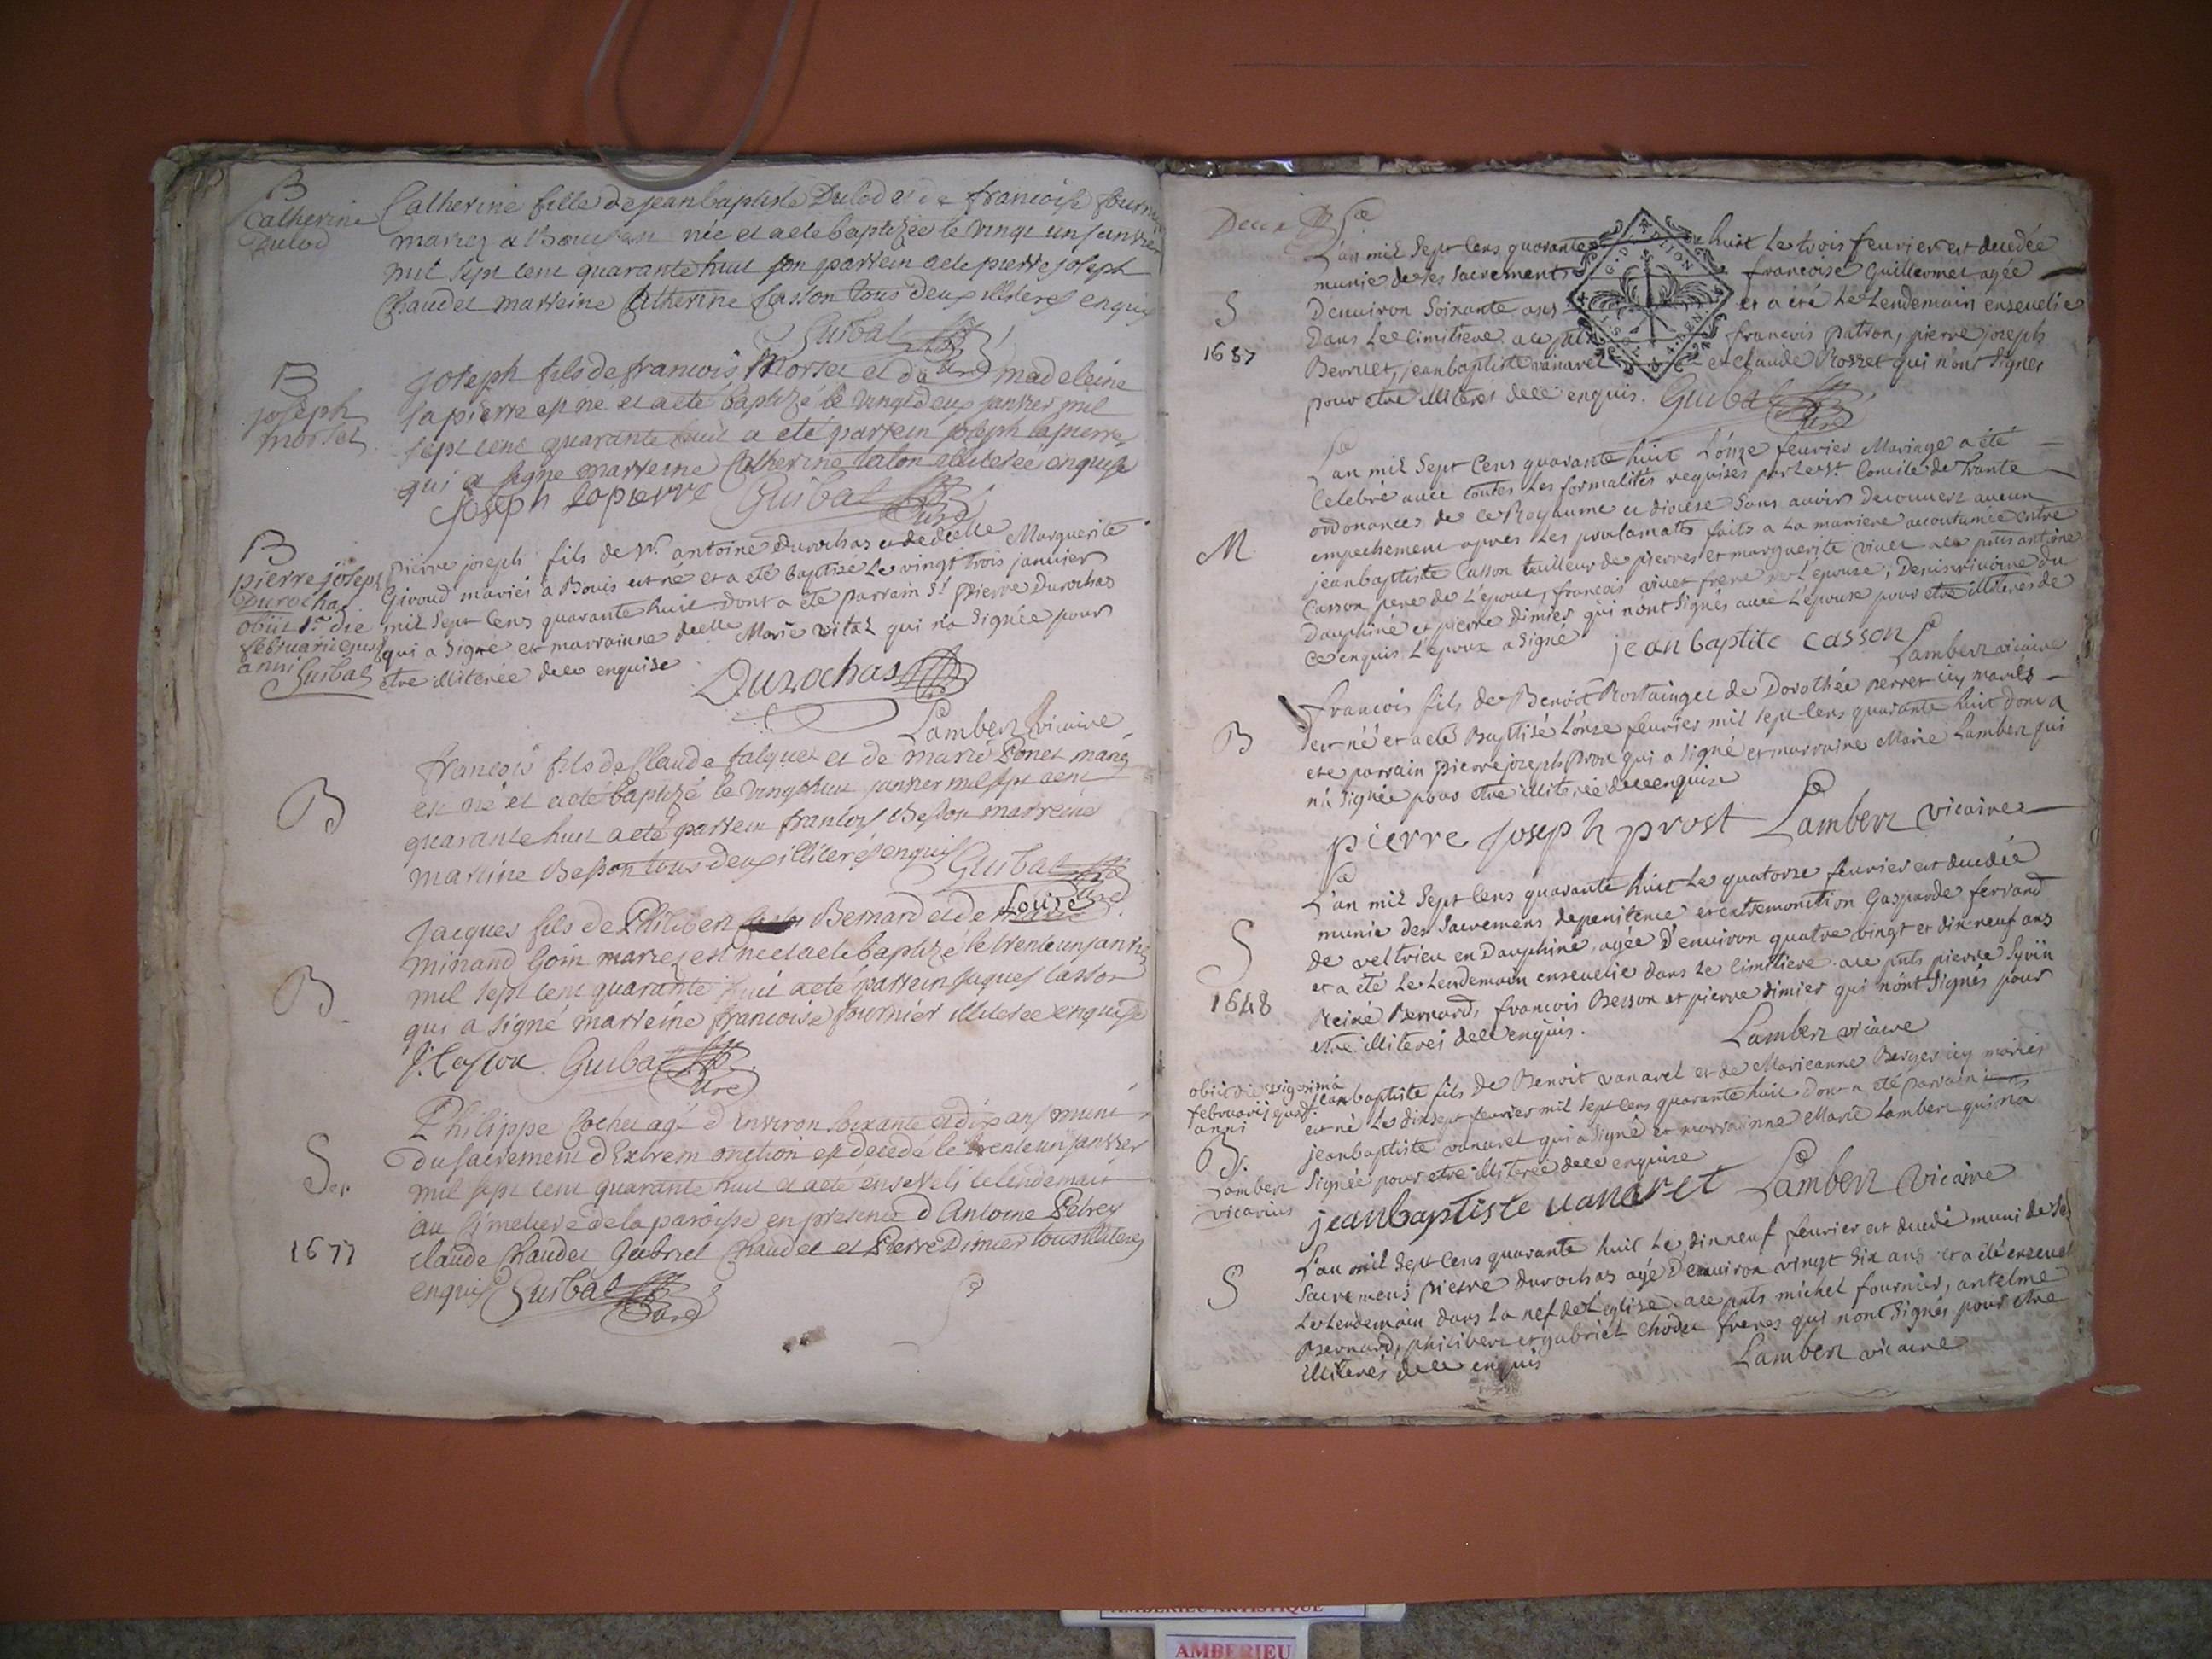 B
Catherine
Dulod
Catherine fille de jean baptiste Dulod et de francoise fournier
mariez a née et a ete baptizée le vingt un janvier
mil sept cent quarante huit son parrein a ete pierre joseph
Chaudet marreine Catherine Casson tous deux illiterés enquis
Guibal Curé
B
joseph
morsel
joseph fils de francois Morsel et de madeleine
lapierre est ne et a eté baptizé le vingt deux janvier mil
sept cent quarante huit a eté parrein joseph lapierre
qui a signe marreine Catherine talon illiteree enquise
joseph lapierre Guibal Curé
B
pierre joseph
Durochas
obiit 1a die
februarii ejusd
anni Guibal
pierre joseph fils de Sr. antoine durochas et de delle Marguerite
Giroud mariés à Bouis est né et a eté baptisé le vingt trois janvier
mil sept cens quarante huit dont a ete parrain Sr pierre Durochas
qui a signé et marrainne delle Marie vital qui n'a signée pour
etre illiterée de ce enquise
Durochas
Lambert vicaire
B
francois fils de Claude falque et de marie Ponet mariez
est né et a eté baptizé le vingt huit janvier mil sept cent
quarante huit a eté parrein francois Besson marreine
marine Besson tous deux illiterés enquis Guibal Curé
B
jacques fils de Philibert Bernard et de Louise
minand Goin mariez est ne et a ete baptizé le trente un janvier
mil sept cent quarante huit a eté parrein jaques casson
qui a signé marreine francoise fournier illiteree enquise
J. Casson Guibal Curé
Ser
1677
Philippe Cochet agé d'environ soixante et dix ans muni
du sacrement d'Extrem onction est decedé le trente un janvier
mil sept cent quarante huit et a eté enseveli le lendemain
au Cimetiere de la paroisse en presence d'Antoine Petrey
claude Chaudet Gabriel Chaudet et Pierre Dimier tous illiteres
enquis Guibal Curé
Deux
S
1687
L'an mil sept cens quarante huit le trois fevrier est decedée
munie de ses sacrements francoise Guillermet agée
D'environ soixante ans et a été le lendemain ensevelie
dans le cimitiere francois patron, pierre joseph
Berruet, jeanbaptiste vanarel et claude Rosset qui n'ont signes
pour etre illiterés de ce enquis. Guibal Curé
M
L'an mil sept cens quarante huit l'onze fevrier Mariage a été
Celebré avec toutes les formalités requises par le st. Concile de Trante
ordonances de ce Royaume et diocese sans avoir decouvert aucun
empechement apres les proclamats faits a la maniere accoutumée entre
jeanbaptiste Casson tailleur de pierres et marguerite vivet antoine
Casson pere de l'epoux, francois vivet frere de l'epouse, Denis du
Dauphiné et pierre dimier qui n'ont signés avec l'epouse pour etre illiterés de
ce enquis l'epoux a signé jean baptite casson
Lambert vicaire
B
francois fils de Benoit Rostaing et de Dorothée perret icy mariés
est né et a eté Baptisé l'onze fevrier mil sept cens quarante huit dont a
ete parrain pierre joseph Prost qui a signé et marraine Marie Lambert qui
n'a signée pour etre illiterée de ce enquise
pierre joseph prost Lambert vicaire
S
1648
L'an mil sept cens quarante huit le quatorze fevrier est decedée
munie des sacremens de penitence et extremonction Gasparde ferrand
de veltrieu en Dauphiné, agée d'environ quatre vingt et dix neuf ans
et a été le lendemain ensevelie dans le cimitiere. pierre
Reiné Bernard, francois Besson et pierre dimier qui n'ont signés pour
etre illiterés de ce enquis.
Lambert vicaire
obiit die vigesima
februarij ejusd:
anni
B.
Lambert
vicarius
jeanbaptiste fils de Benoit vanarel et de Marieanne Berger icy mariés
est né le dixsept fevrier mil sept cens quarante huit dont a été parrain
jeanbaptiste vanarel qui a signé et marrainne Marie Lambert qui n'a
signée pour etre illiterée de ce enquise
jeanbaptiste vanaret Lambert vicaire
S
L'an mil sept cens quarante huit le dix neuf fevrier est decedé muni de ses
sacremens pierre durochas agé d'environ vingt six ans et a été enseveli
le lendemain dans la nef de l'eglise. michel fournier, antelme
Bernard, philibert et gabriel chodet freres qui n'ont signés pour etre
illiterés de ce enquis
Lambert vicaire
AMBERIEU ARTISTIQUE
AMBERIEU